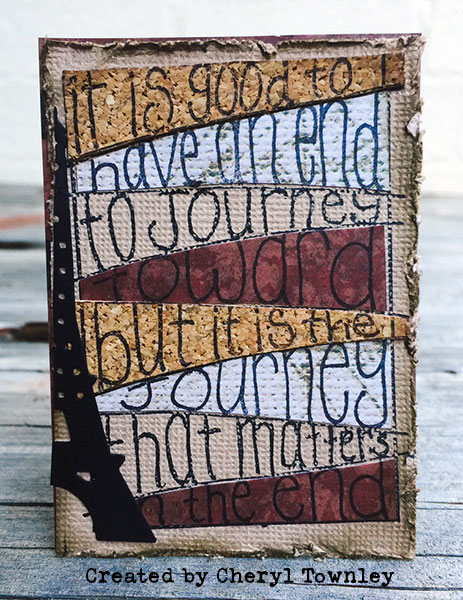 it is good to
have an end
to journey
toward
but it is the
journey
that matters
in the end
Created by Cheryl Townley